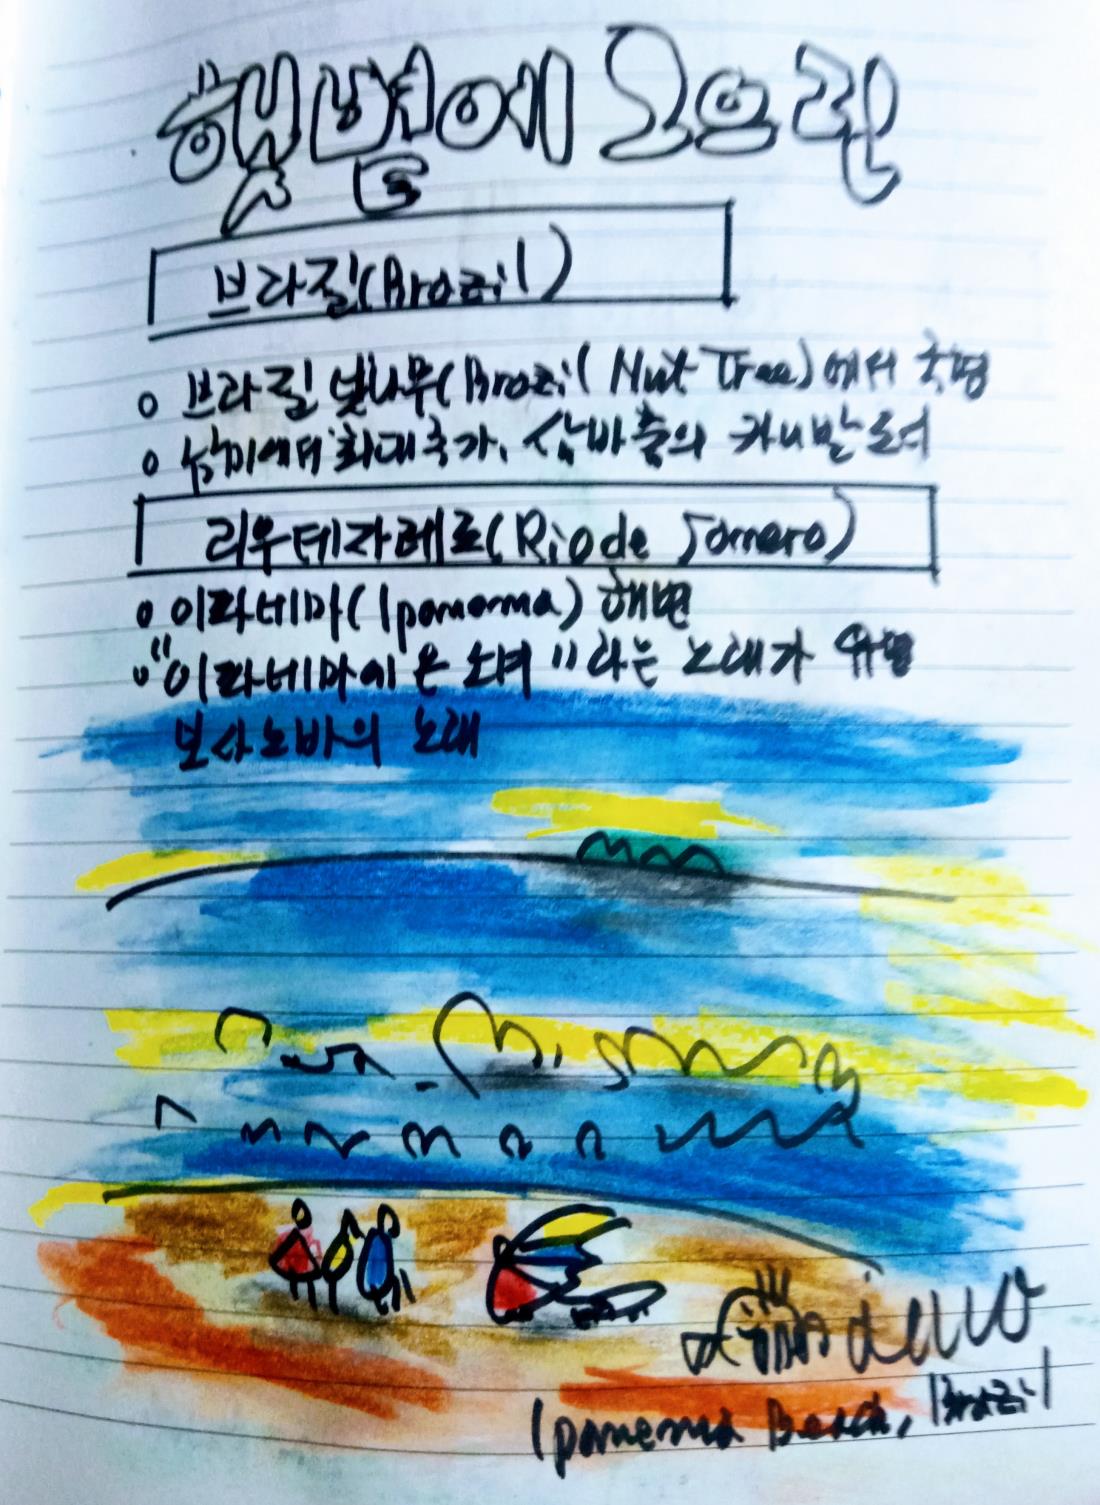 햇볕에 모으란
브라질(Brazil)
o 브라질 넛나무(Brazil Nut Tree)에서 국명
o 남미에서 최대국가, 삼바춤의 카니발로서
리우데자네로(Rio de Janero)
o 이파네마(Ipanema) 해변
o "이파네마에 온 소녀"라는 노래가 유명
보사노바의 노래
Ipanema Beach, Brazil